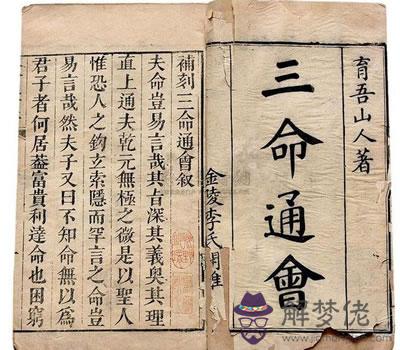 育吾山人著
三命通會
金陵李氏
補刻三命通會叙
夫命豈易言哉其旨深其義奧其理
直上通夫乾元無極之微是以聖人
惟恐人之鈎玄索隱而罕言之命豈
易言哉然夫子又曰不知命無以為
君子者何居葢富貴利達命也困窮
解梦佬